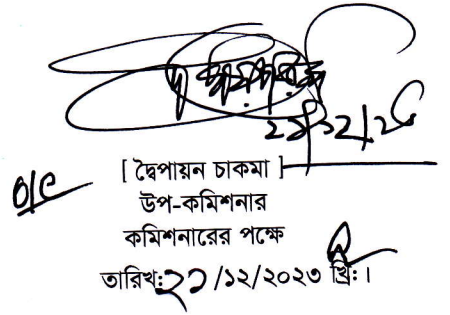 [ দ্বৈপায়ন চাকমা ]
উপ-কমিশনার
কমিশনারের পক্ষে
তারিখ: ২১ /১২/২০২৩ খ্রি: ।